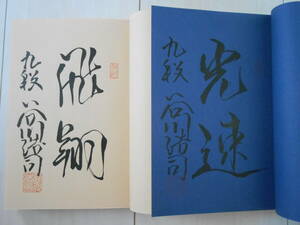 飛翔
九段 谷川浩司
光速
九段 谷川浩司